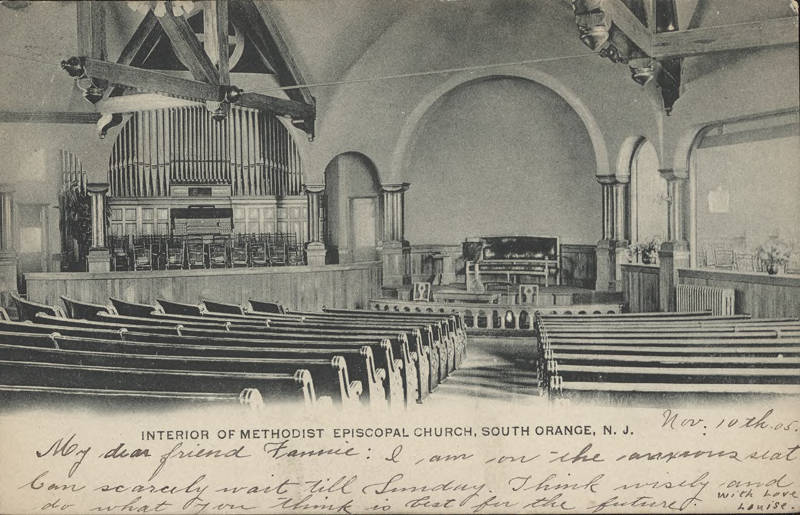 INTERIOR OF METHODIST EPISCOPAL CHURCH, SOUTH ORANGE, N. J.
Nov. 10th. 05.
My dear friend Fannie: I am on the anxious seat
Can scarcely wait till Sunday. Think wisely and
do what you think is best for the future.
With Love
Louise.